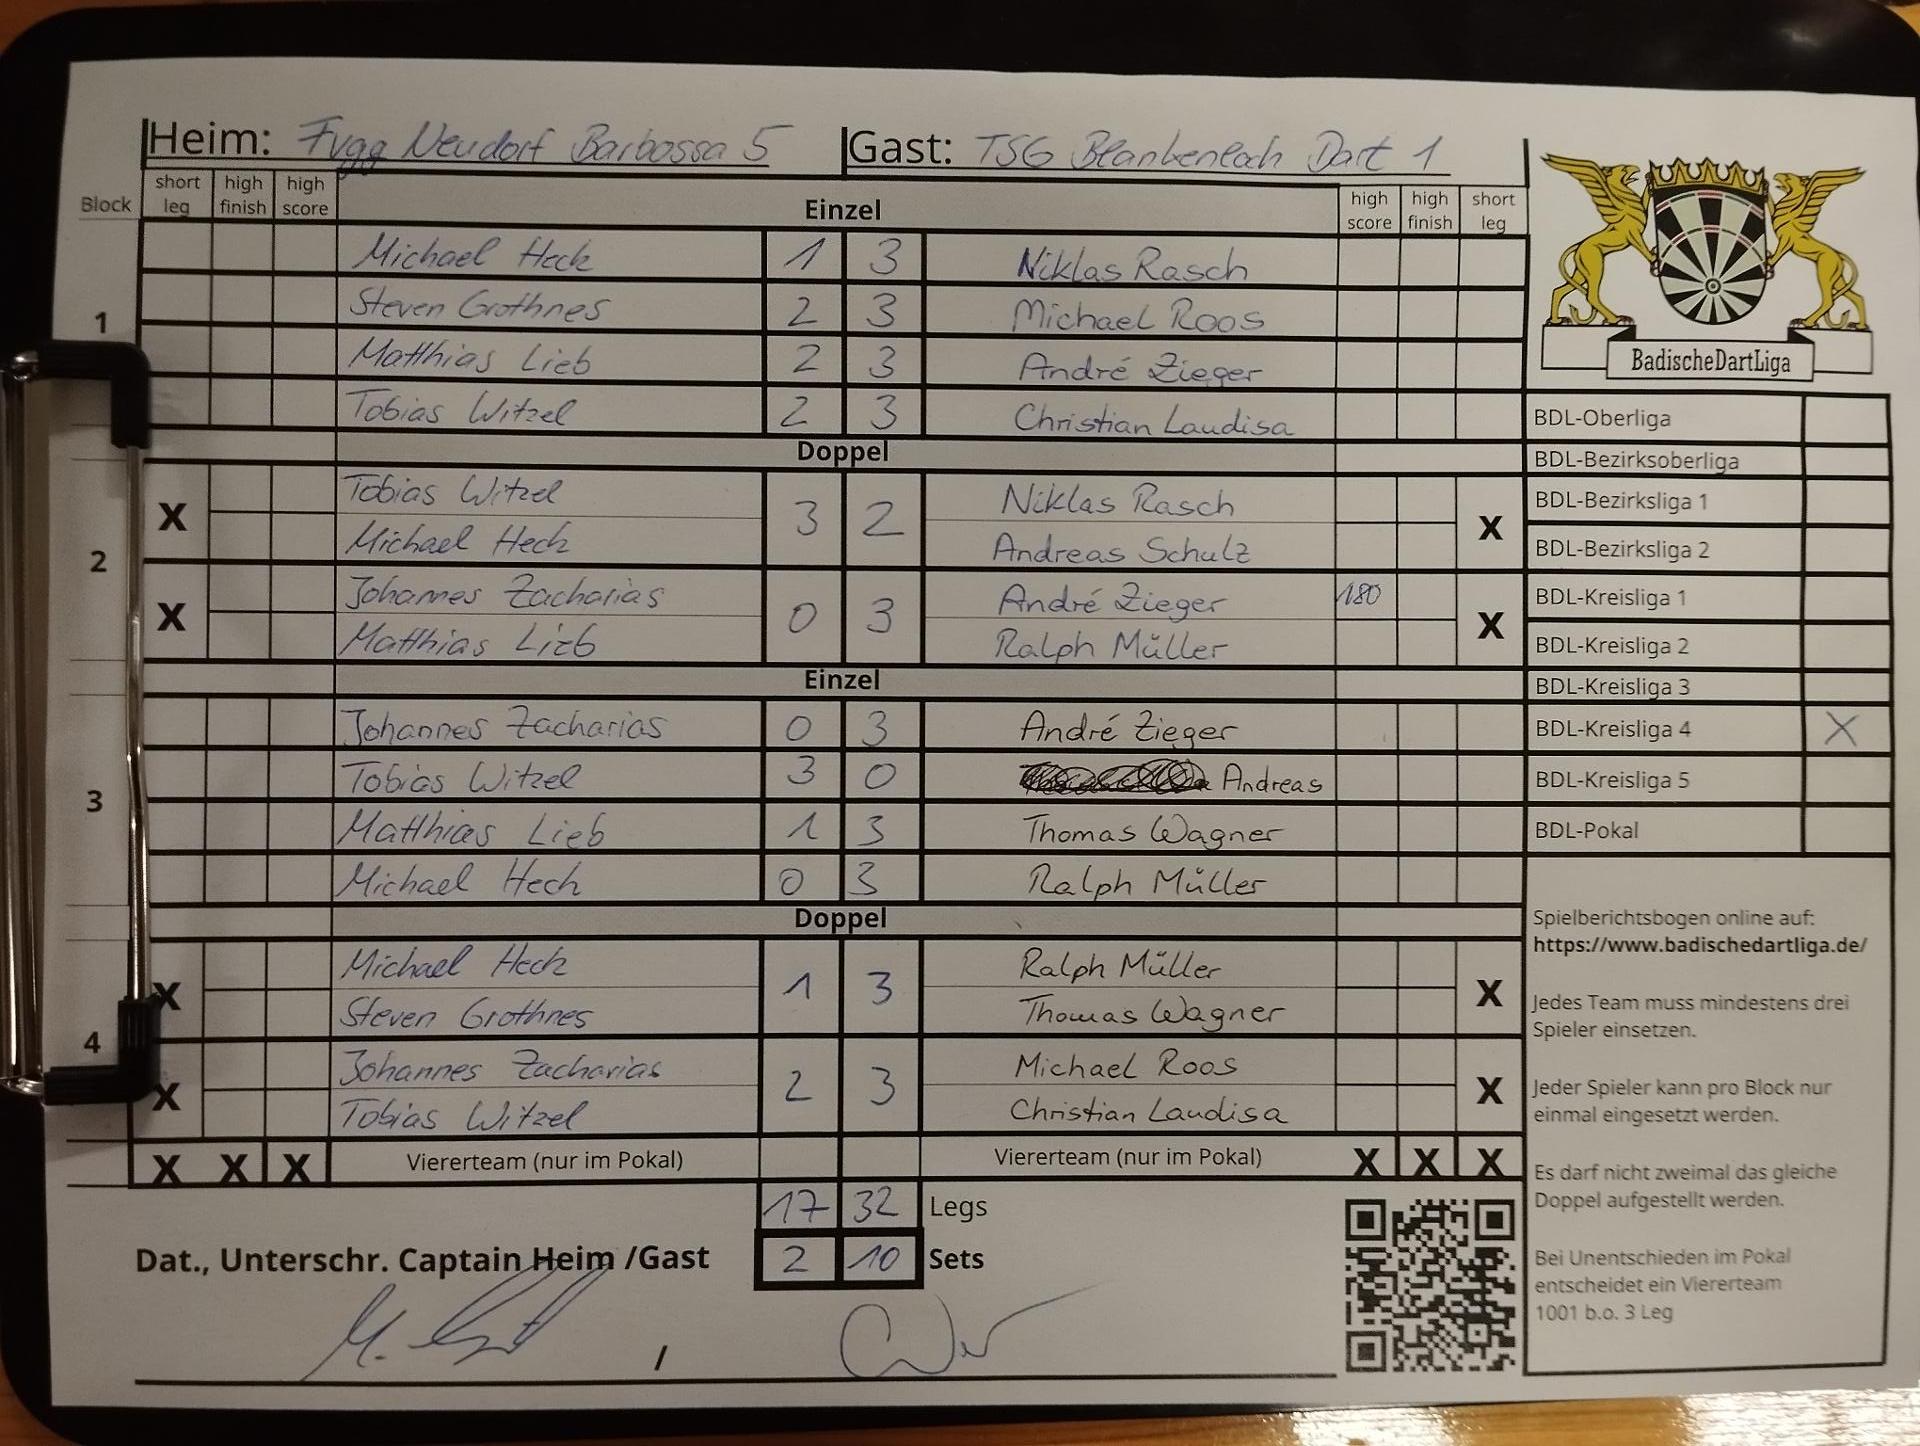 Heim: Fvgg Neudorf Barbossa 5 Gast: TSG Blankenloch Dart 1
Block short leg high finish high score Einzel high score high finish short leg
1
Michael Heck 1 3 Niklas Rasch
Steven Grothnes 2 3 Michael Roos
Matthias Lieb 2 3 André Zieger
Tobias Witzel 2 3 Christian Laudisa
Doppel
2
X Tobias Witzel 3 2 Niklas Rasch X
Michael Heck Andreas Schulz
X Johannes Zacharias 0 3 André Zieger 180 X
Matthias Lieb Ralph Müller
Einzel
3
Johannes Zacharias 0 3 André Zieger
Tobias Witzel 3 0 Andreas
Matthias Lieb 1 3 Thomas Wagner
Michael Heck 0 3 Ralph Müller
Doppel
4
X Michael Heck 1 3 Ralph Müller X
Steven Grothnes Thomas Wagner
X Johannes Zacharias 2 3 Michael Roos X
Tobias Witzel Christian Laudisa
X X X Viererteam (nur im Pokal) Viererteam (nur im Pokal) X X X
17 32 Legs
Dat., Unterschr. Captain Heim /Gast 2 10 Sets
/
BadischeDartLiga
BDL-Oberliga
BDL-Bezirksoberliga
BDL-Bezirksliga 1
BDL-Bezirksliga 2
BDL-Kreisliga 1
BDL-Kreisliga 2
BDL-Kreisliga 3
BDL-Kreisliga 4 X
BDL-Kreisliga 5
BDL-Pokal
Spielberichtsbogen online auf:
https://www.badischedartliga.de/
Jedes Team muss mindestens drei
Spieler einsetzen.
Jeder Spieler kann pro Block nur
einmal eingesetzt werden.
Es darf nicht zweimal das gleiche
Doppel aufgestellt werden.
Bei Unentschieden im Pokal
entscheidet ein Viererteam
1001 b.o. 3 Leg